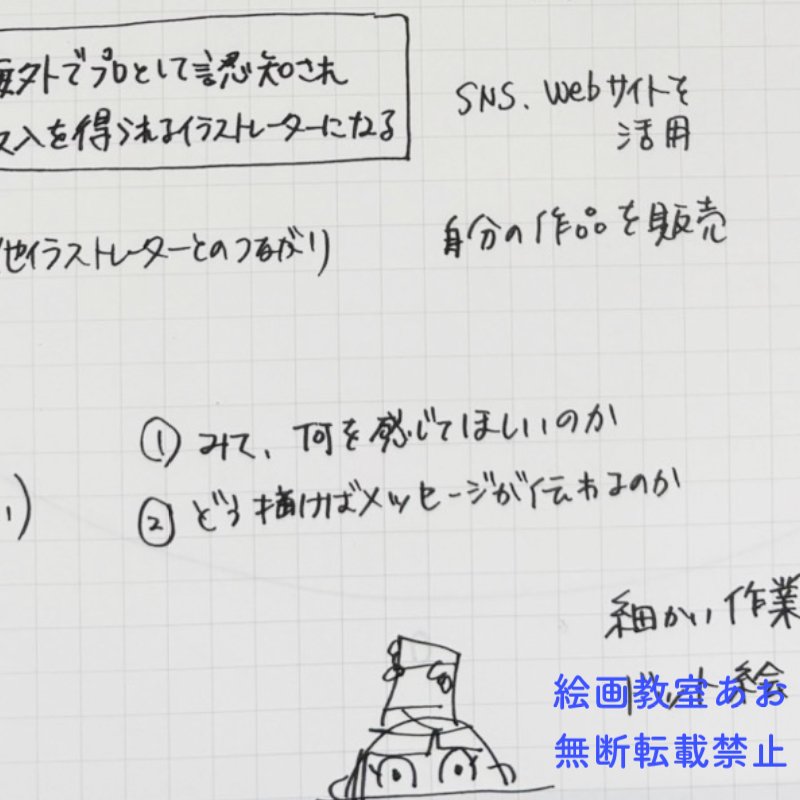 海外でプロとして認知され
収入を得られるイラストレーターになる
SNS、Webサイトを
活用
他イラストレーターとのつながり
自分の作品を販売
① みて、何を感じてほしいのか
② どう描けばメッセージが伝わるのか
い)
細かい作業
ドット絵
絵画教室あお
無断転載禁止